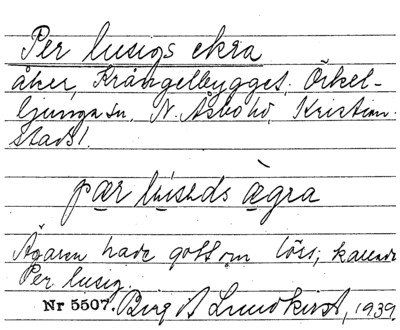 Per lusigs ekra
åker, Krångelbygget, Örkel-
ljunga sn, N. Åsbo hd, Kristian-
stads l.
pær lúseds ægra
Ägaren hade gott om löss, kallades
Per lusig.
Nr 5507. Birgit Lundkvist, 1939.